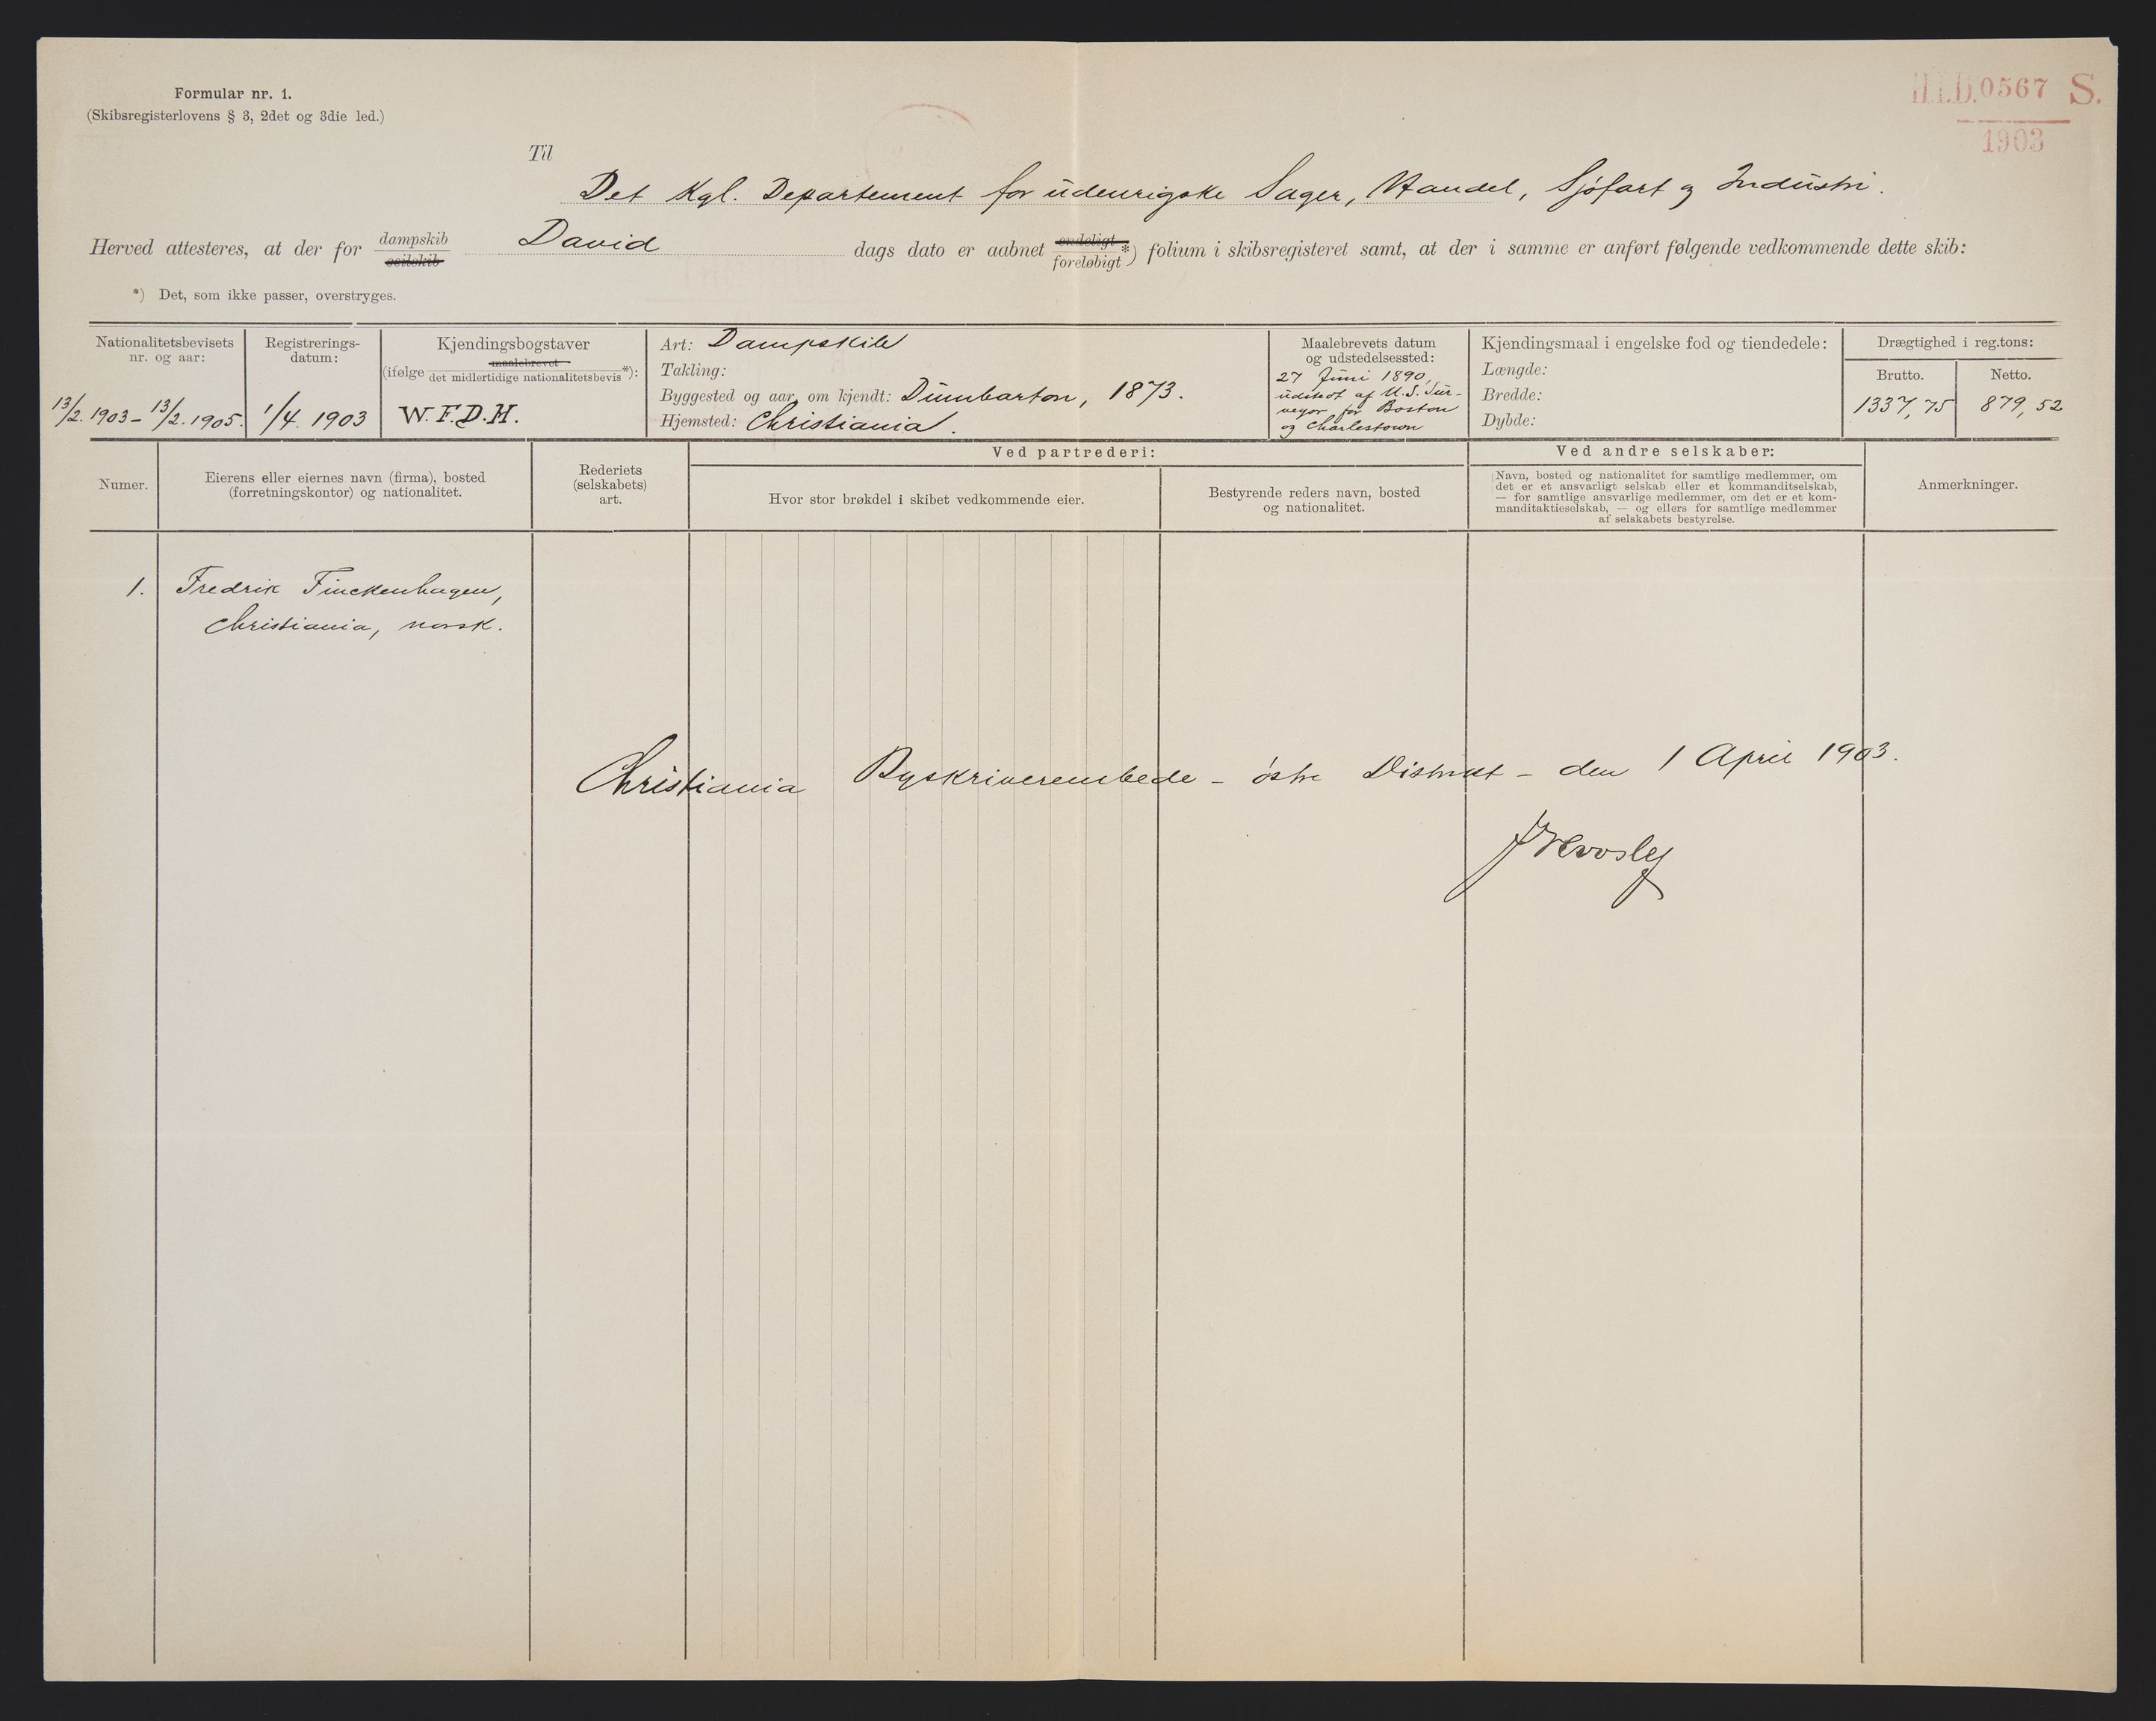 Formular nr. 1.
(Skibsregisterlovens § 3, 2det og 3die led.)
0567 S.
1903
Til
Det Kgl. Departement for udenrigske Sager, Handel, Sjøfart og Industri.
Herved attesteres, at der for dampskib seilskib David dags dato er aabnet endeligt foreløbigt *) folium i skibsregisteret samt, at der i samme er anført følgende vedkommende dette skib:
*) Det, som ikke passer, overstryges.
Nationalitetsbevisets
nr. og aar:
13/2. 1903 – 13/2. 1905.
Registrerings-
datum:
1/4. 1903
Kjendingsbogstaver
(ifølge maalebrevet det midlertidige nationalitetsbevis *):
W.F.D.H.
Art: Dampskib
Takling:
Byggested og aar, om kjendt: Dumbarton, 1873.
Hjemsted: Christiania.
Maalebrevets datum
og udstedelsessted:
27 Juni 1890,
udstedt af U.S. Sur-
veyor for Boston
og Charlestown
Kjendingsmaal i engelske fod og tiendedele:
Længde:
Bredde:
Dybde:
Drægtighed i reg.tons:
Brutto.
1337,75
Netto.
879,52
Numer.
Eierens eller eiernes navn (firma), bosted
(forretningskontor) og nationalitet.
Rederiets
(selskabets)
art.
Ved partrederi:
Hvor stor brøkdel i skibet vedkommende eier.
Bestyrende reders navn, bosted
og nationalitet.
Ved andre selskaber:
Navn, bosted og nationalitet for samtlige medlemmer, om
det er et ansvarligt selskab eller et kommanditselskab,
— for samtlige ansvarlige medlemmer, om det er et kom-
manditaktieselskab, — og ellers for samtlige medlemmer
af selskabets bestyrelse.
Anmerkninger.
1. Fredrik Finckenhagen,
Christiania, norsk.
Christiania Byskriverembede – østre Distrikt – den 1 April 1903.